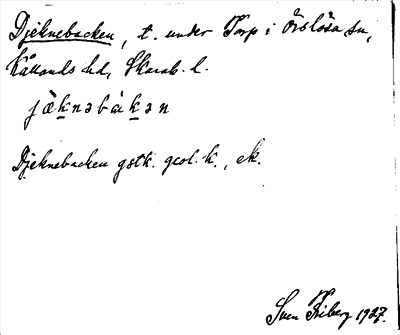 Djeknebacken, t. under Torp i Örslösa sn,
Kållands hd, Skarab. l.
jæ̀knəbàkən
Djeknebacken gstk. geol. k., ek.
Sven Friberg 1927.